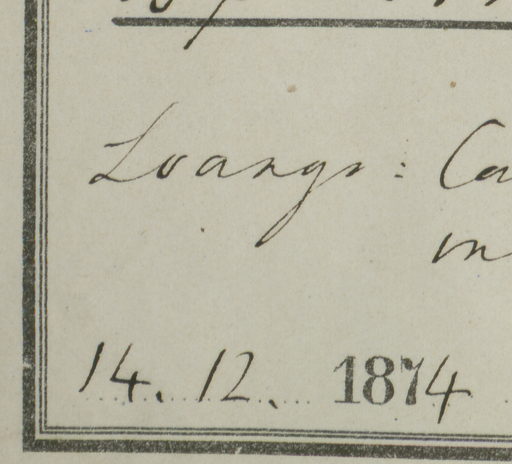 Loango: Ca
in
14. 12. 1874